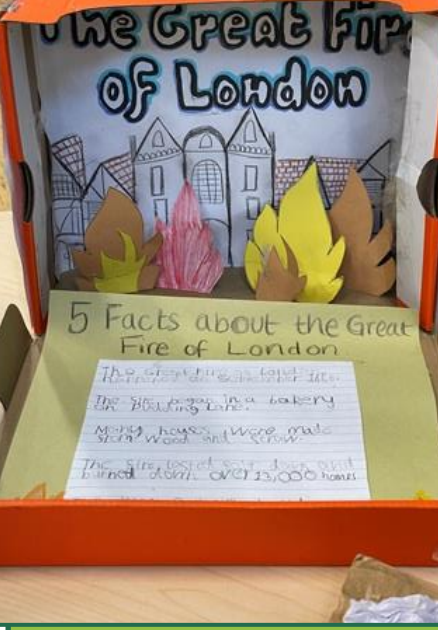 The Great Fire
of London
5 Facts about the Great
Fire of London
The Great Fire of London
happened on September 1666.
The fire began in a bakery
on Pudding Lane.
Many houses were made
from wood and straw.
The fire lasted four days and
burned down over 13,000 homes